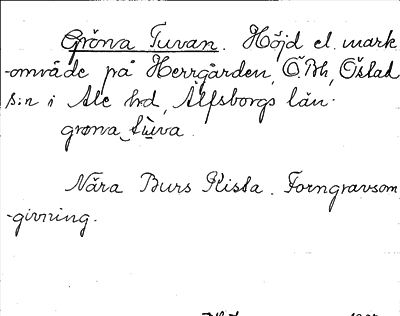 Gröna Tuvan. Höjd el. mark
-område på Herrgården, Ö.Bh, Östad
s:n i Ale hrd, Älfsborgs län.
grøna tùva.
Nära Burs Kista. Forngravsom
-givning.